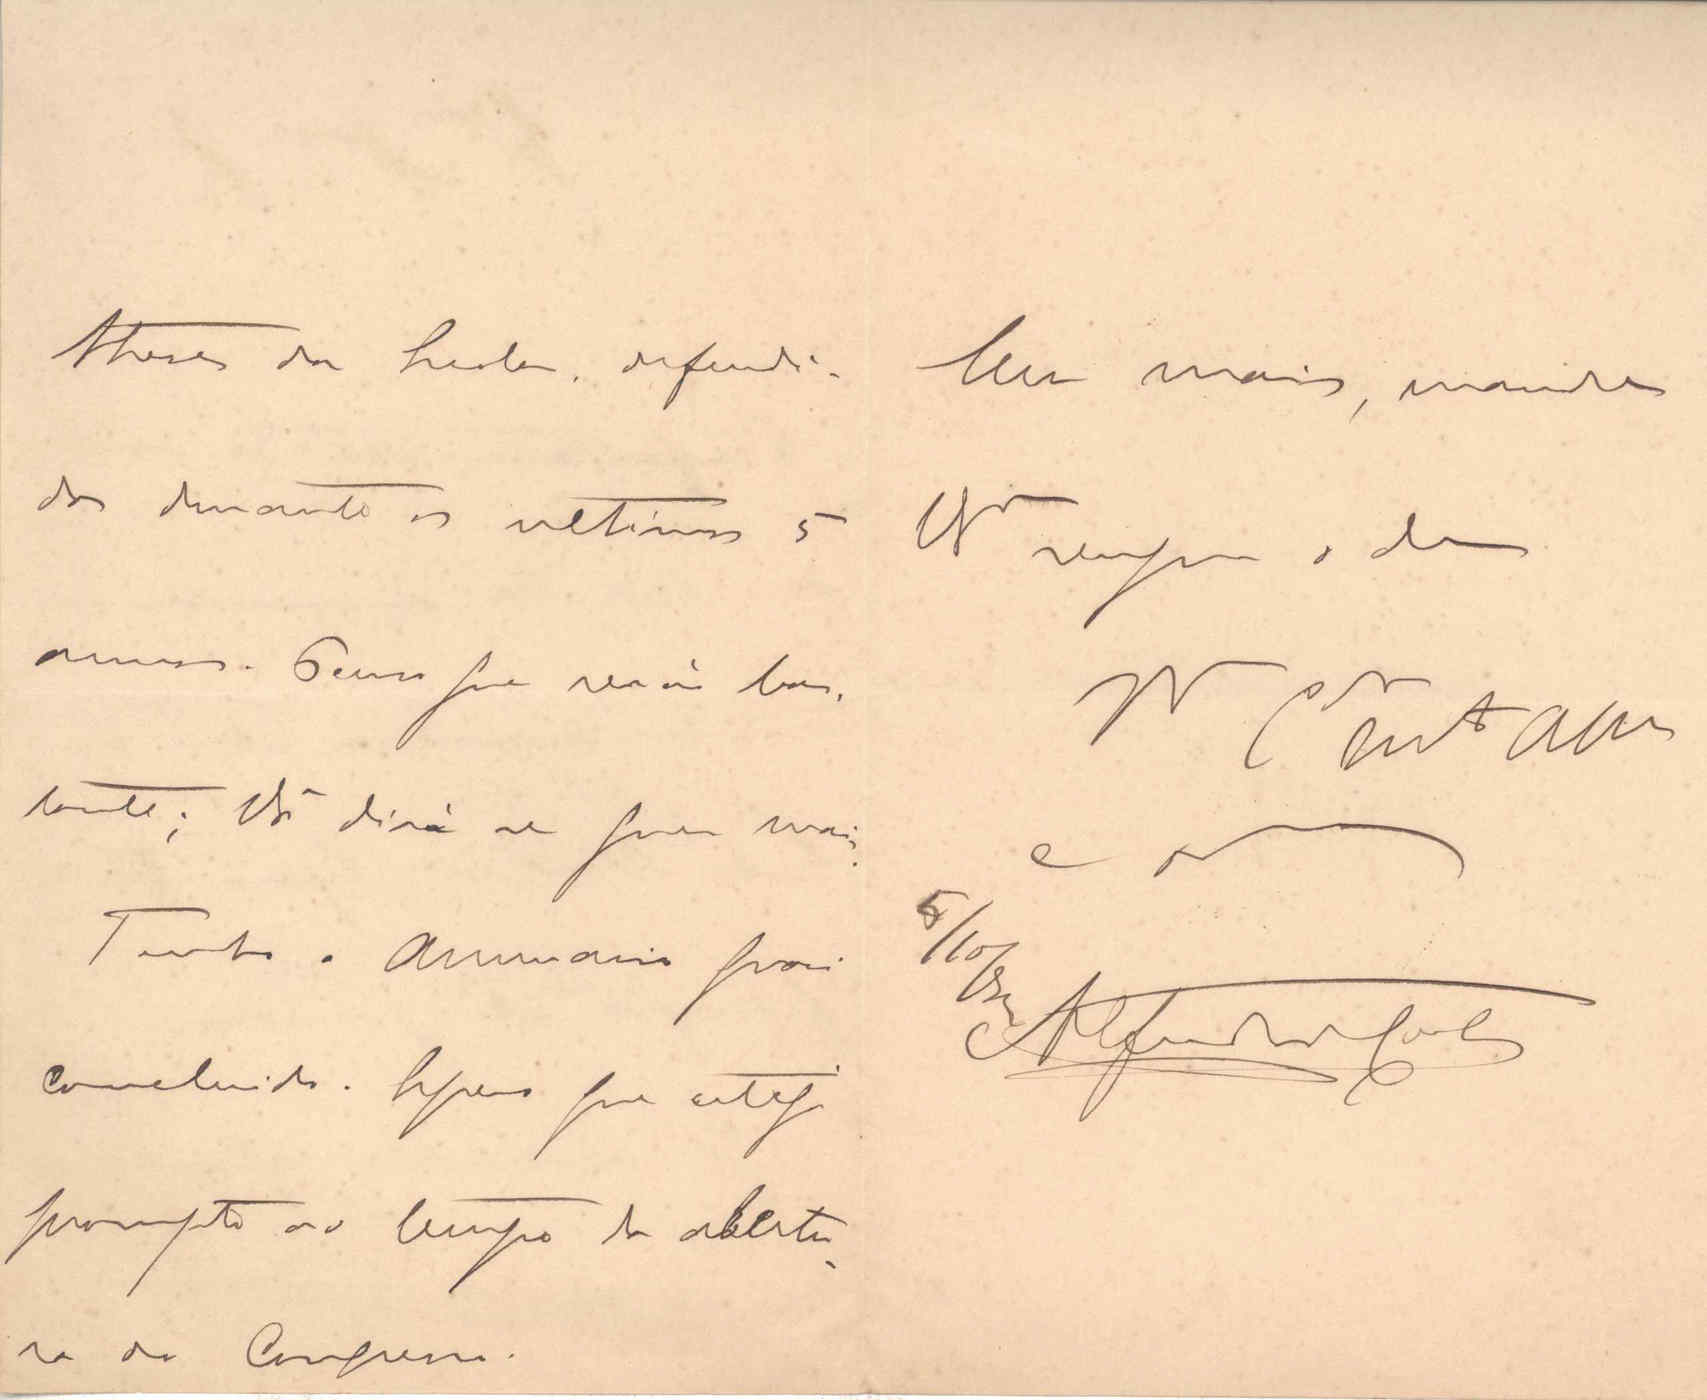 theses da Escola, defendi-
das durante os ultimos 5
annos. Penso que serão bas-
tante; VEx dirá se quer mais.
Tenho o Annuario quasi
concluido. Espero que esteja
prompto ao tempo da abertu-
ra do Congresso.
Sem mais, mande
VEx sempre o de
VEx
Cro Att
e
5/10/92
Alfredo